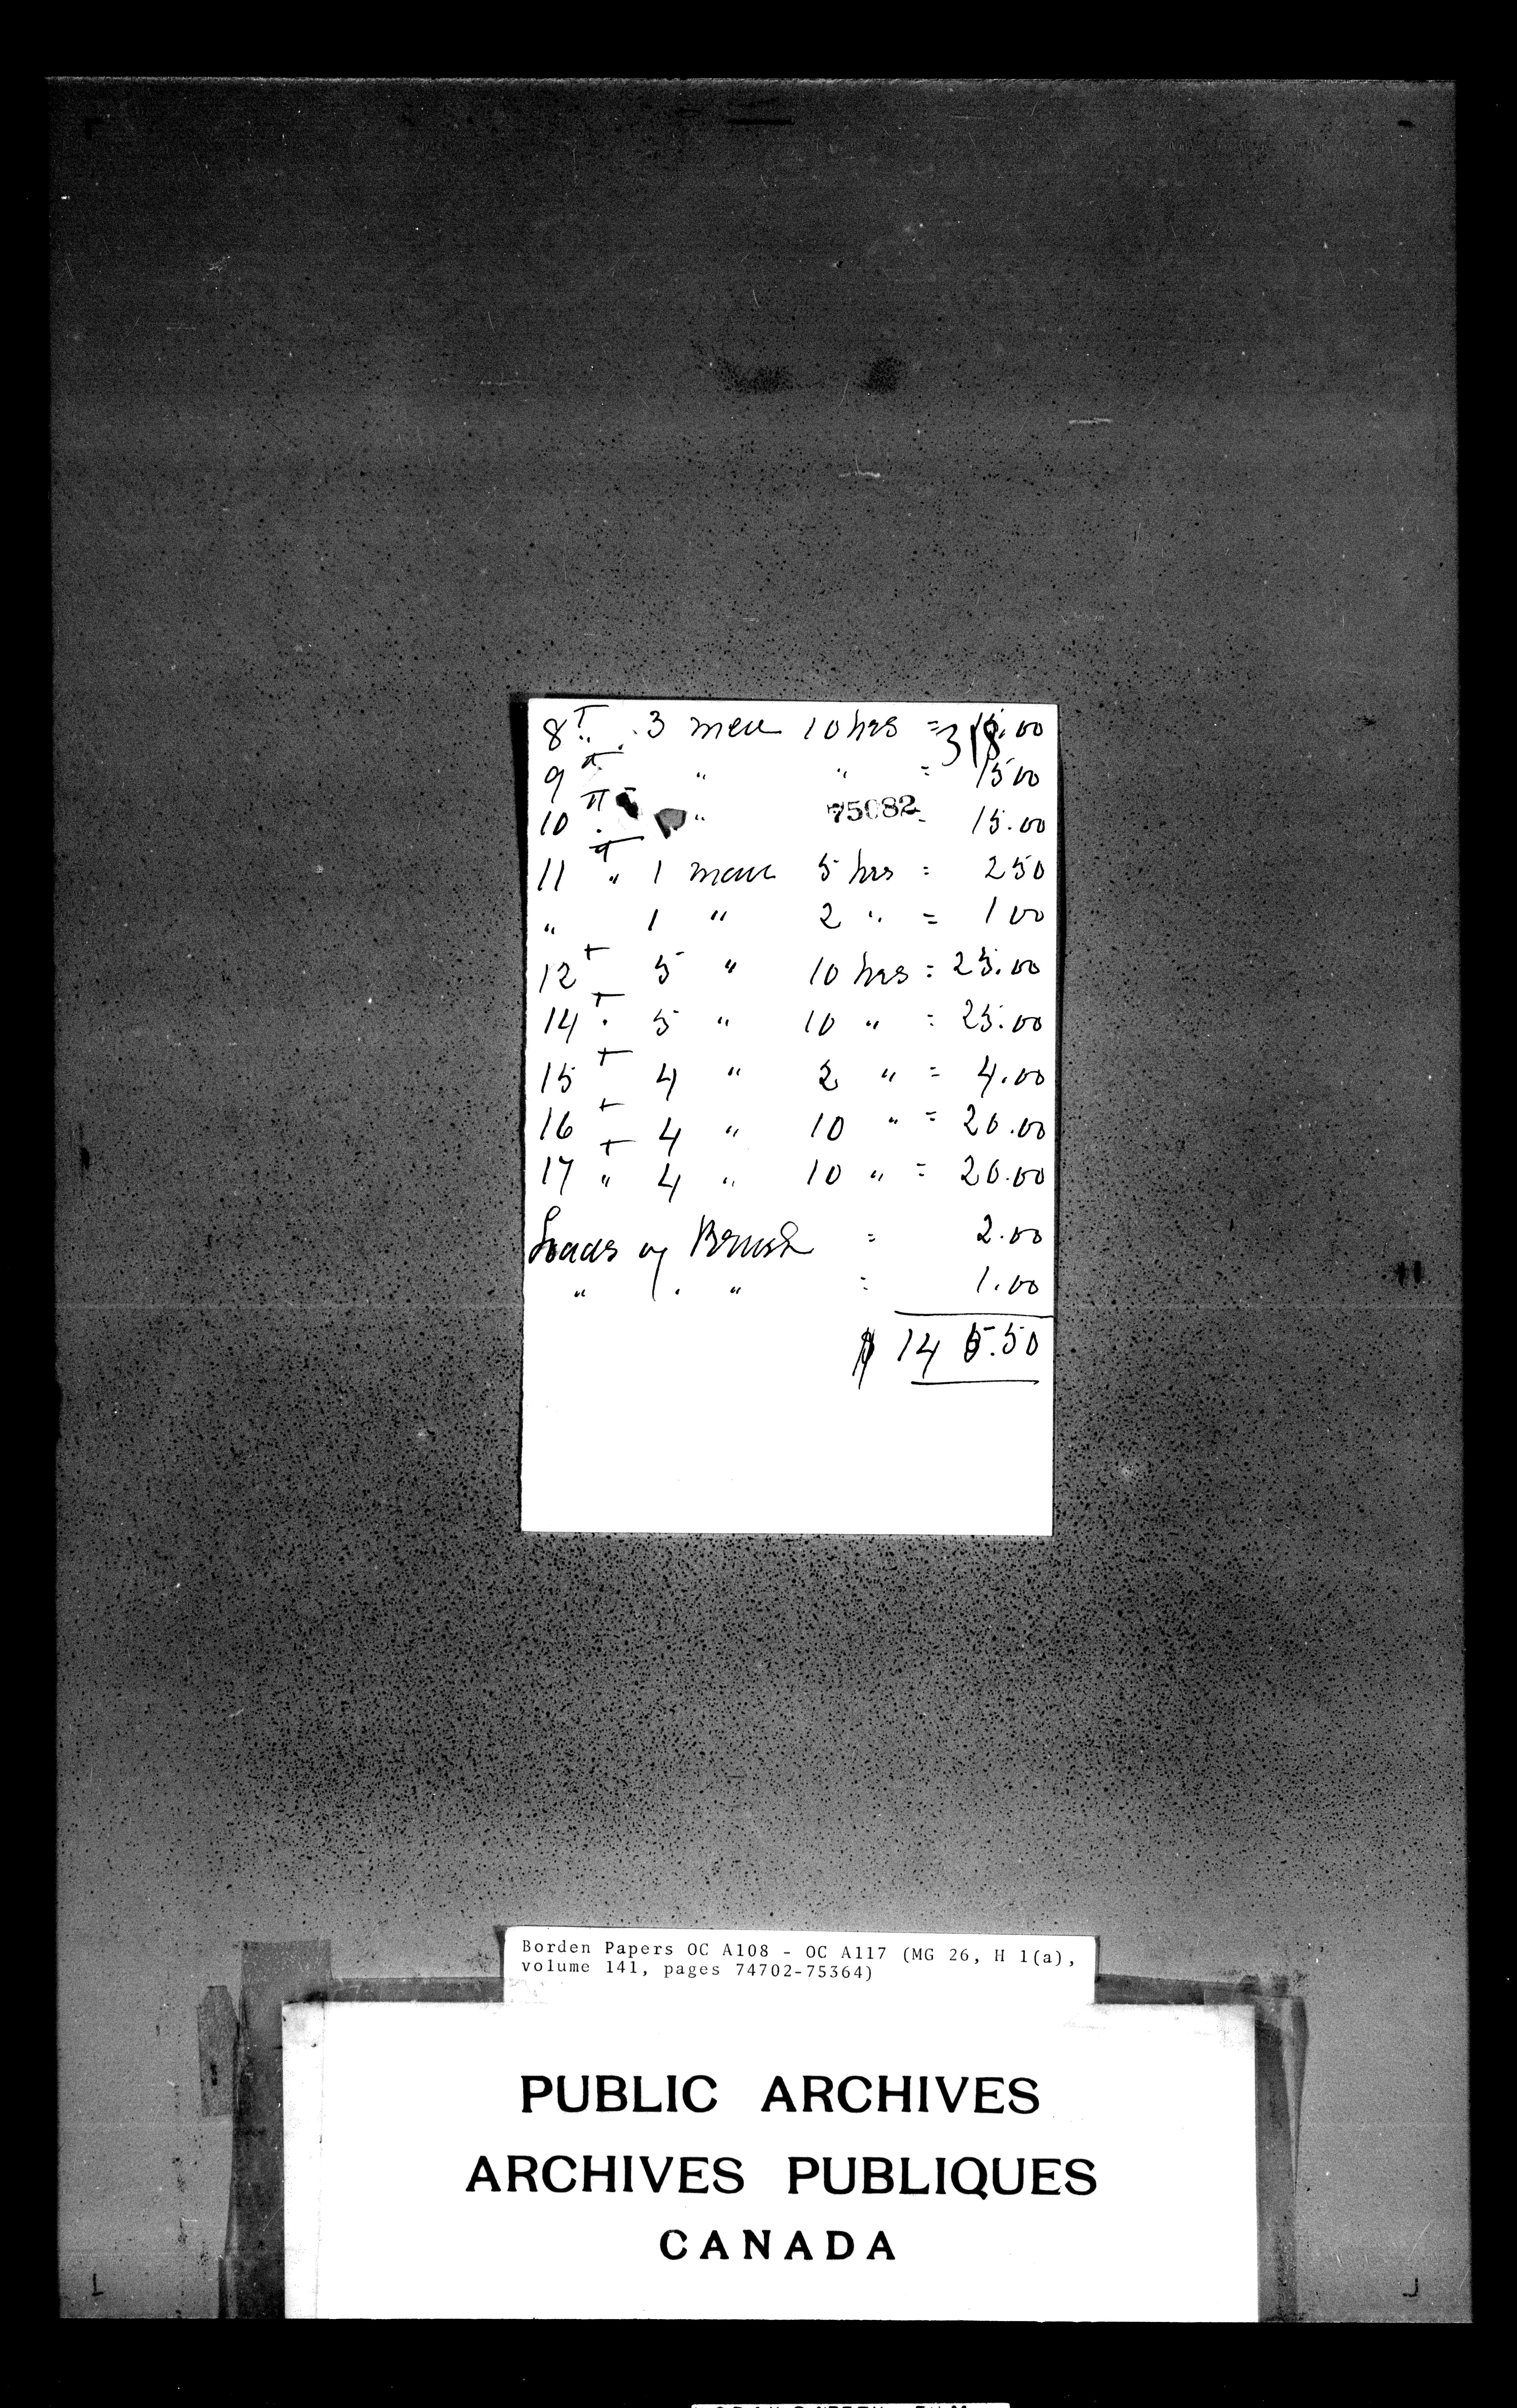 8T " 3 men 10 hrs = 15.00
318
9 " " " = 1500
10 " " = 15.00
75082
11 " 1 man 5 hrs = 250
" 1 " 2 " = 1 00
12 5 " 10 hrs = 25.00
14 5 " 10 " = 25.00
15 4 " 2 " = 4.00
16 4 " 10 " = 20.00
17 " 4 " 10 " = 20.00
Loads of Brush = 2.00
" " " = 1.00
$ 145.50
Borden Papers OC A108 - OC A117 (MG 26, H 1(a),
volume 141, pages 74702-75364)
PUBLIC ARCHIVES
ARCHIVES PUBLIQUES
CANADA